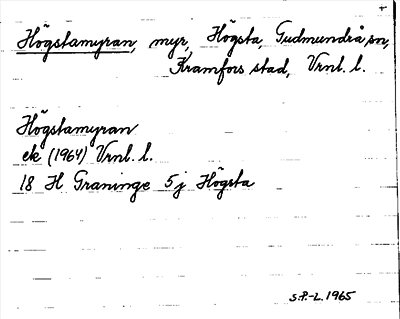 Högstamyran, myr, Högsta, Gudmundrå sn,
Kramfors stad, Vrnl. l.
Högstamyran
ek (1964) Vrnl. l.
18 H Graninge 5 j Högsta
S.P.-L. 1965